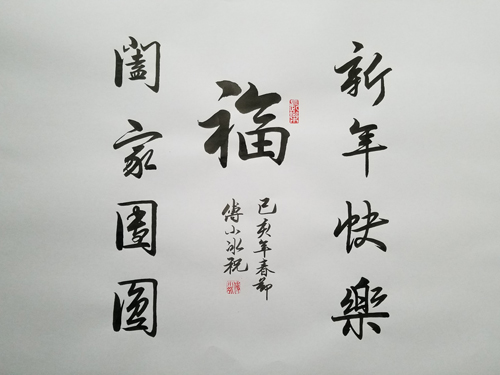 新年快樂
福
己亥年春節
傅小冰祝
闔家團圓